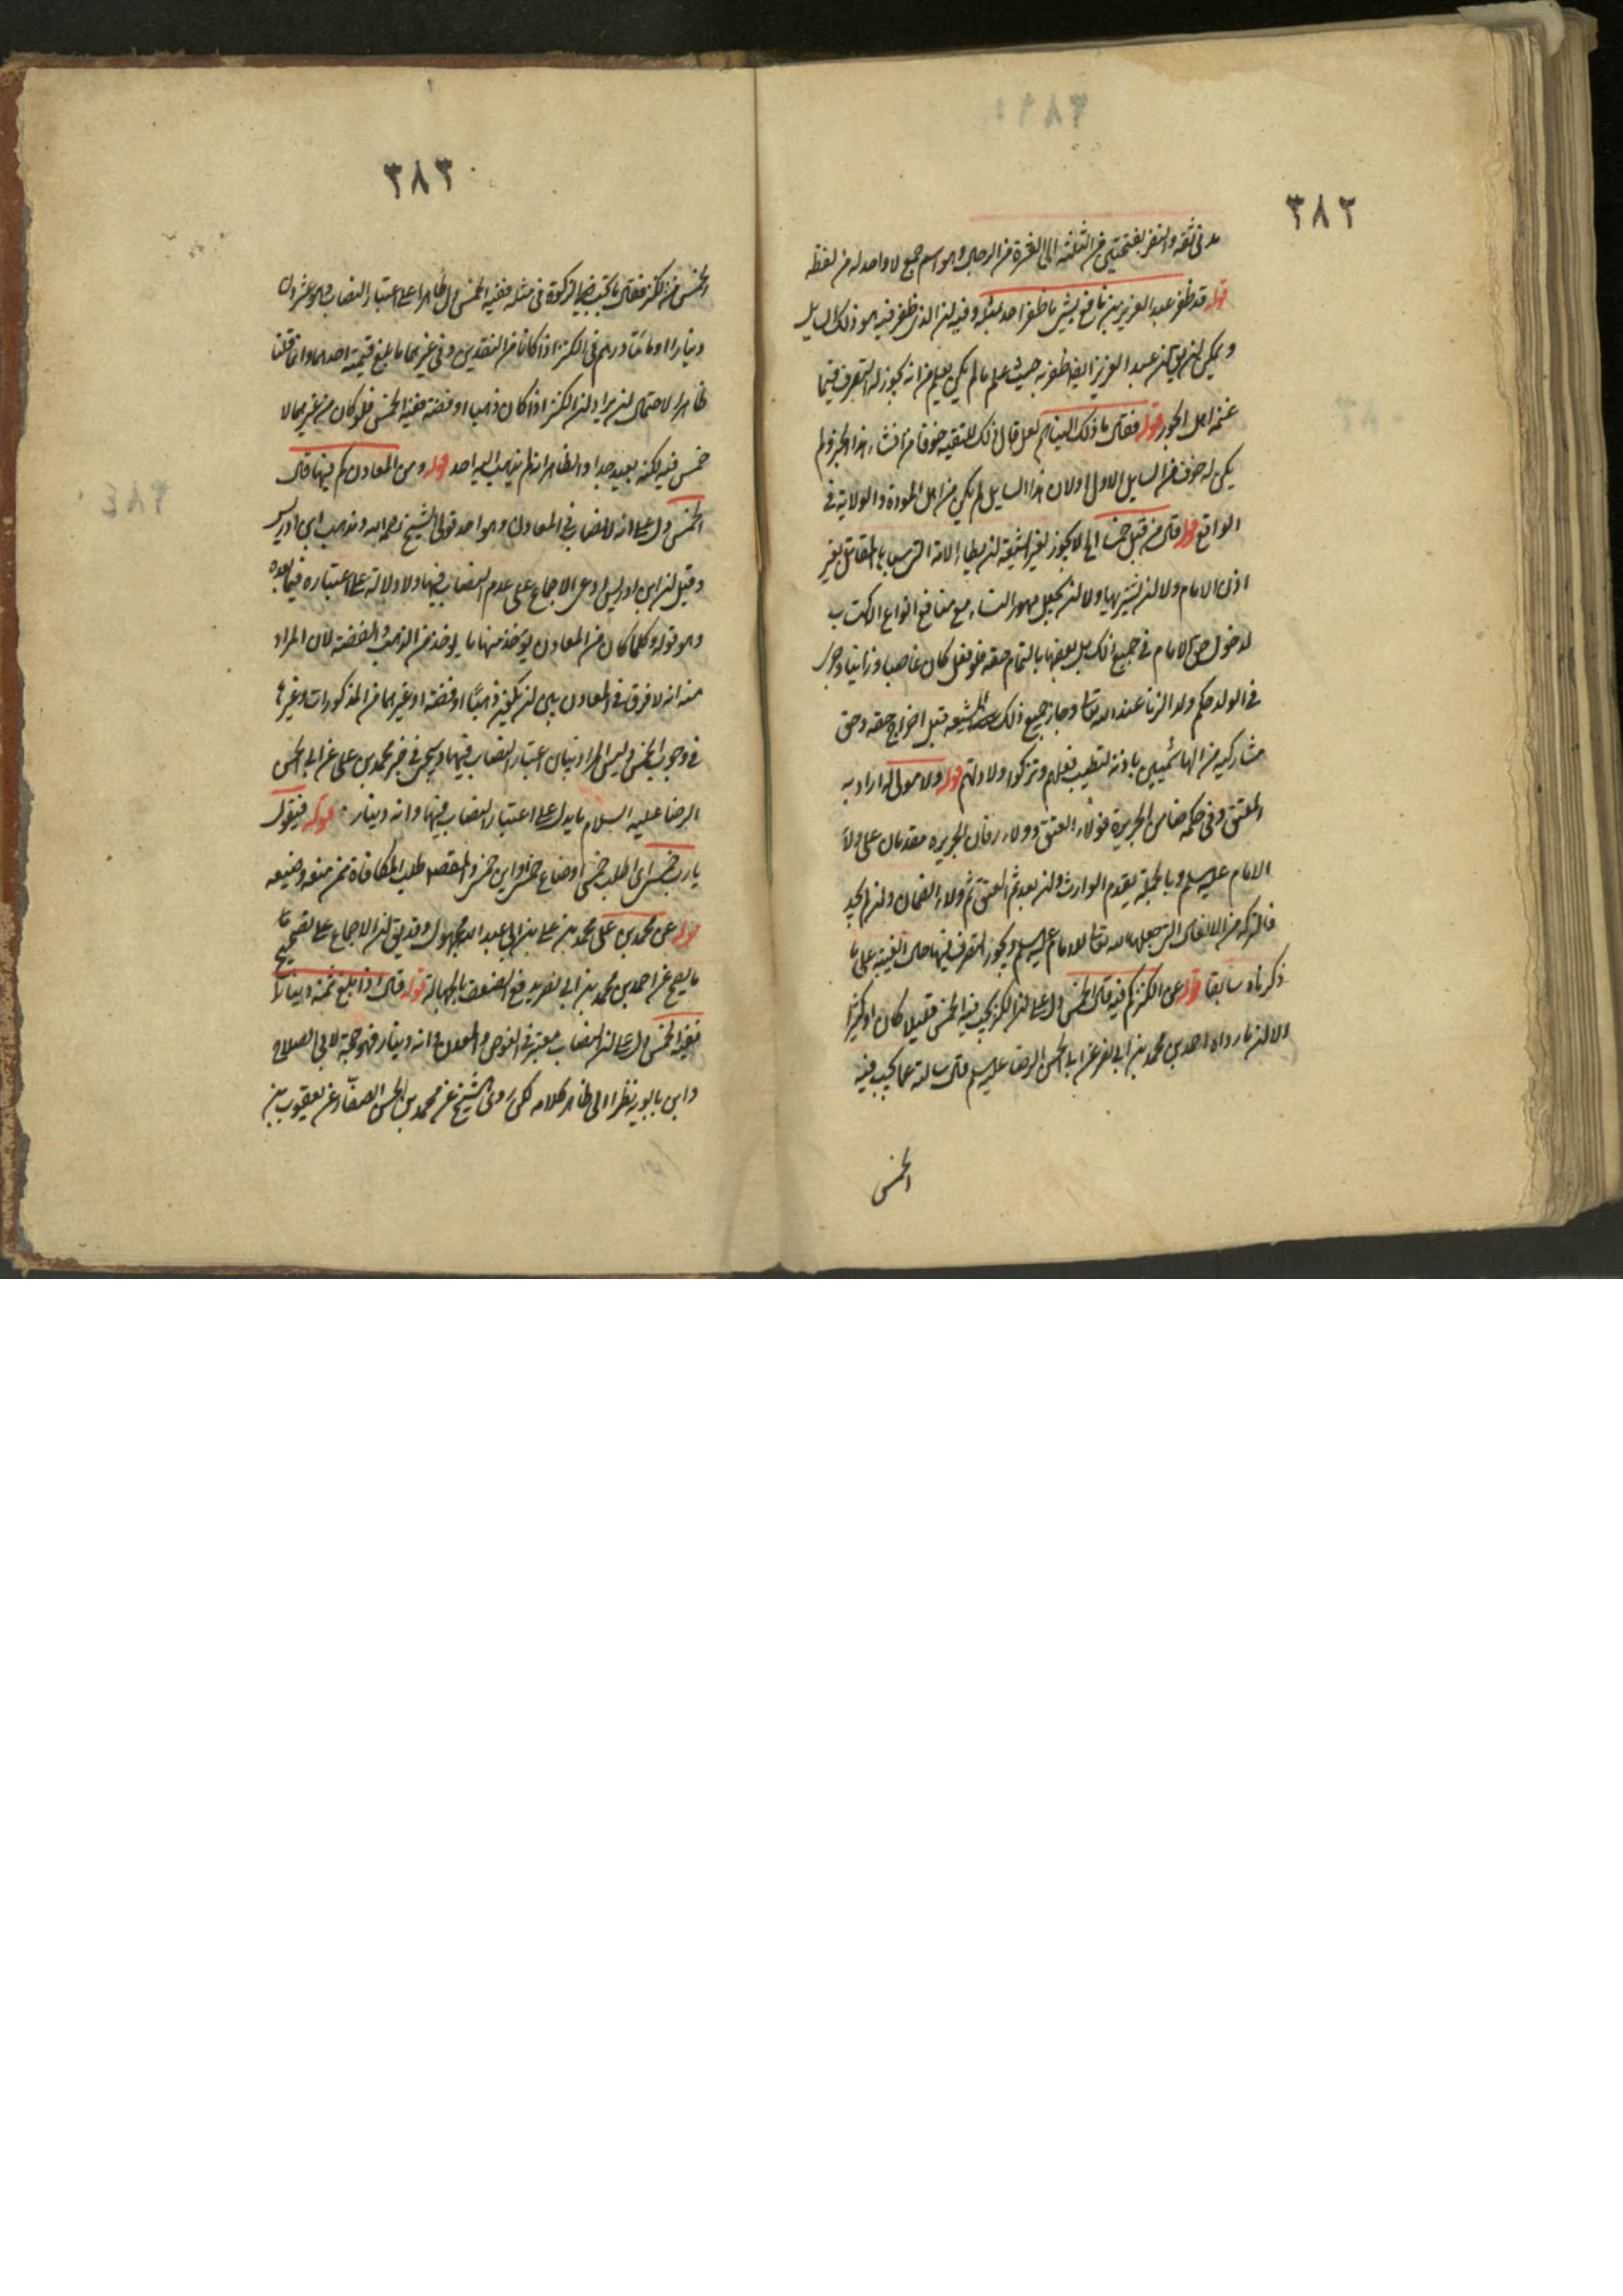 ٣٨٢
مدنى ثقة والنفر بفتحتين من الثلثة الى العشرة من الرجال وهو اسم جمع لا واحد له من لفظه
قوله قد ظفر عبد العزيز بن نافع بشىء ما ظفر احد بمثله وفيه ان الذى ظفر فيه هو ذلك السايل
ويمكن ان يق ان عبد العزيز ايضا ظفر به حيث علم ما لم يكن يعلم من انه يجوز له التصرف فيما
غنمه اهل الجور قوله فقال ما ذلك الينا لعل قال ذلك للتقيه خوفا من افشاء هذا الخبر ولم
يكن له خوف من السايل الاول او لان هذا السايل لم يكن من اهل المودة والولاية فى
الواقع قوله قال من قبل خمسنا اى لا يجوز لغير الشيعة ان يطأ الامة التى سباها المقاتل بغير
اذن الامام ولا ان يشتريها ولا ان يجعل مهور النساء مع منافع انواع الاكتساب
لدخول حق الامام فى جميع ذلك بل بعضها بالتمام حقه فلو فعل كان غاصبا وزانيا وجرى
فى الولد حكم ولد الزنا عند الله تعالى وجاز جميع ذلك للشيعه قبل اخراج حقه وحق
مشاركيه من الهاشميين باذنه لتطيب فعلهم وتزكوا ولادتهم قوله ولا مولى له اراد به
المعتق وفى حكمه ضامن الجريرة فولاء العتق وولاء ضمان الجريره مقدمان على ولاء
الامام عليه السلم وبالجملة يقدم الوارث وان بعد ثم العتق ثم ولاء الضمان وان لم يجد
فالتركة من الانفال التى جعلها الله تعالى للامام عليه السلم ويجوز التصرف فيها حال الغيبة على ما
ذكرناه سابقا قوله عن الكنز كم فيه قال الخمس دل على ان الكنز يجب فيه الخمس قليلا كان او كثيرا
الا ان ما رواه احمد بن محمد بن ابى نصر عن ابى الحسن الرضا عليه السلم قال سالته عما يجب فيه
الخمس
٣٨٣
الخمس من الكنز فقال ما يجب فيه الزكوة فى مثله ففيه الخمس دل ظاهرا على اعتبار النصاب وهو عشرون
دينارا او مائتا درهم فى الكنز اذا كان من النقدين وفى غيرهما ما بلغ قيمته احدهما وانما قلنا
ظاهرا لاحتمال ان يراد ان الكنز اذا كان ذهبا او فضة ففيه الخمس فلو كان من غيرهما لا
خمس فيه لكنه بعيد جدا والظاهر انه لم يذهب اليه احد قوله وعن المعادن كم فيها قال
الخمس دل على انه لا نصاب فى المعادن وهو احد قولى الشيخ رحمه الله ومذهب ابن ادريس
وقيل ان ابن ادريس ادعى الاجماع على عدم النصاب فيها ولا دلالة على اعتباره فيما بعده
وهو قوله وكلما كان من المعادن يؤخذ منها ما يؤخذ من الذهب والفضة لان المراد
منه انه لا فرق فى المعادن بين ان يكون ذهبا او فضة او غيرهما من المذكورات وغيرها
فى وجوب الخمس وليس المراد بيان اعتبار النصاب فيها وسيجئ فى خبر محمد بن على عن ابى الحسن
الرضا عليه السلام ما يدل على اعتبار النصاب فيها وانه دينار. قوله فيقول
يا رب خمسى اى اطلب خمسى او ضاع خمسى او اين خمسى والمقصد طلب المكافاة ممن منعه وضيعه
قوله عن محمد بن على محمد بن على بن ابى عبد الله مجهول وقد يق ان الاجماع على تصحيح ما
ما يصح عن احمد بن محمد بن ابى نصر يدفع الضعف بالجهالة قوله قال اذا بلغ ثمنه دينارا
ففيه الخمس دل على ان النصاب معتبر فى الغوص والمعدن وانه دينار فهو حجة لابى الصلاح
وابن بابويه نظرا الى ظاهر كلامه لكن روى الشيخ عن محمد بن الحسن الصفار عن يعقوب بن